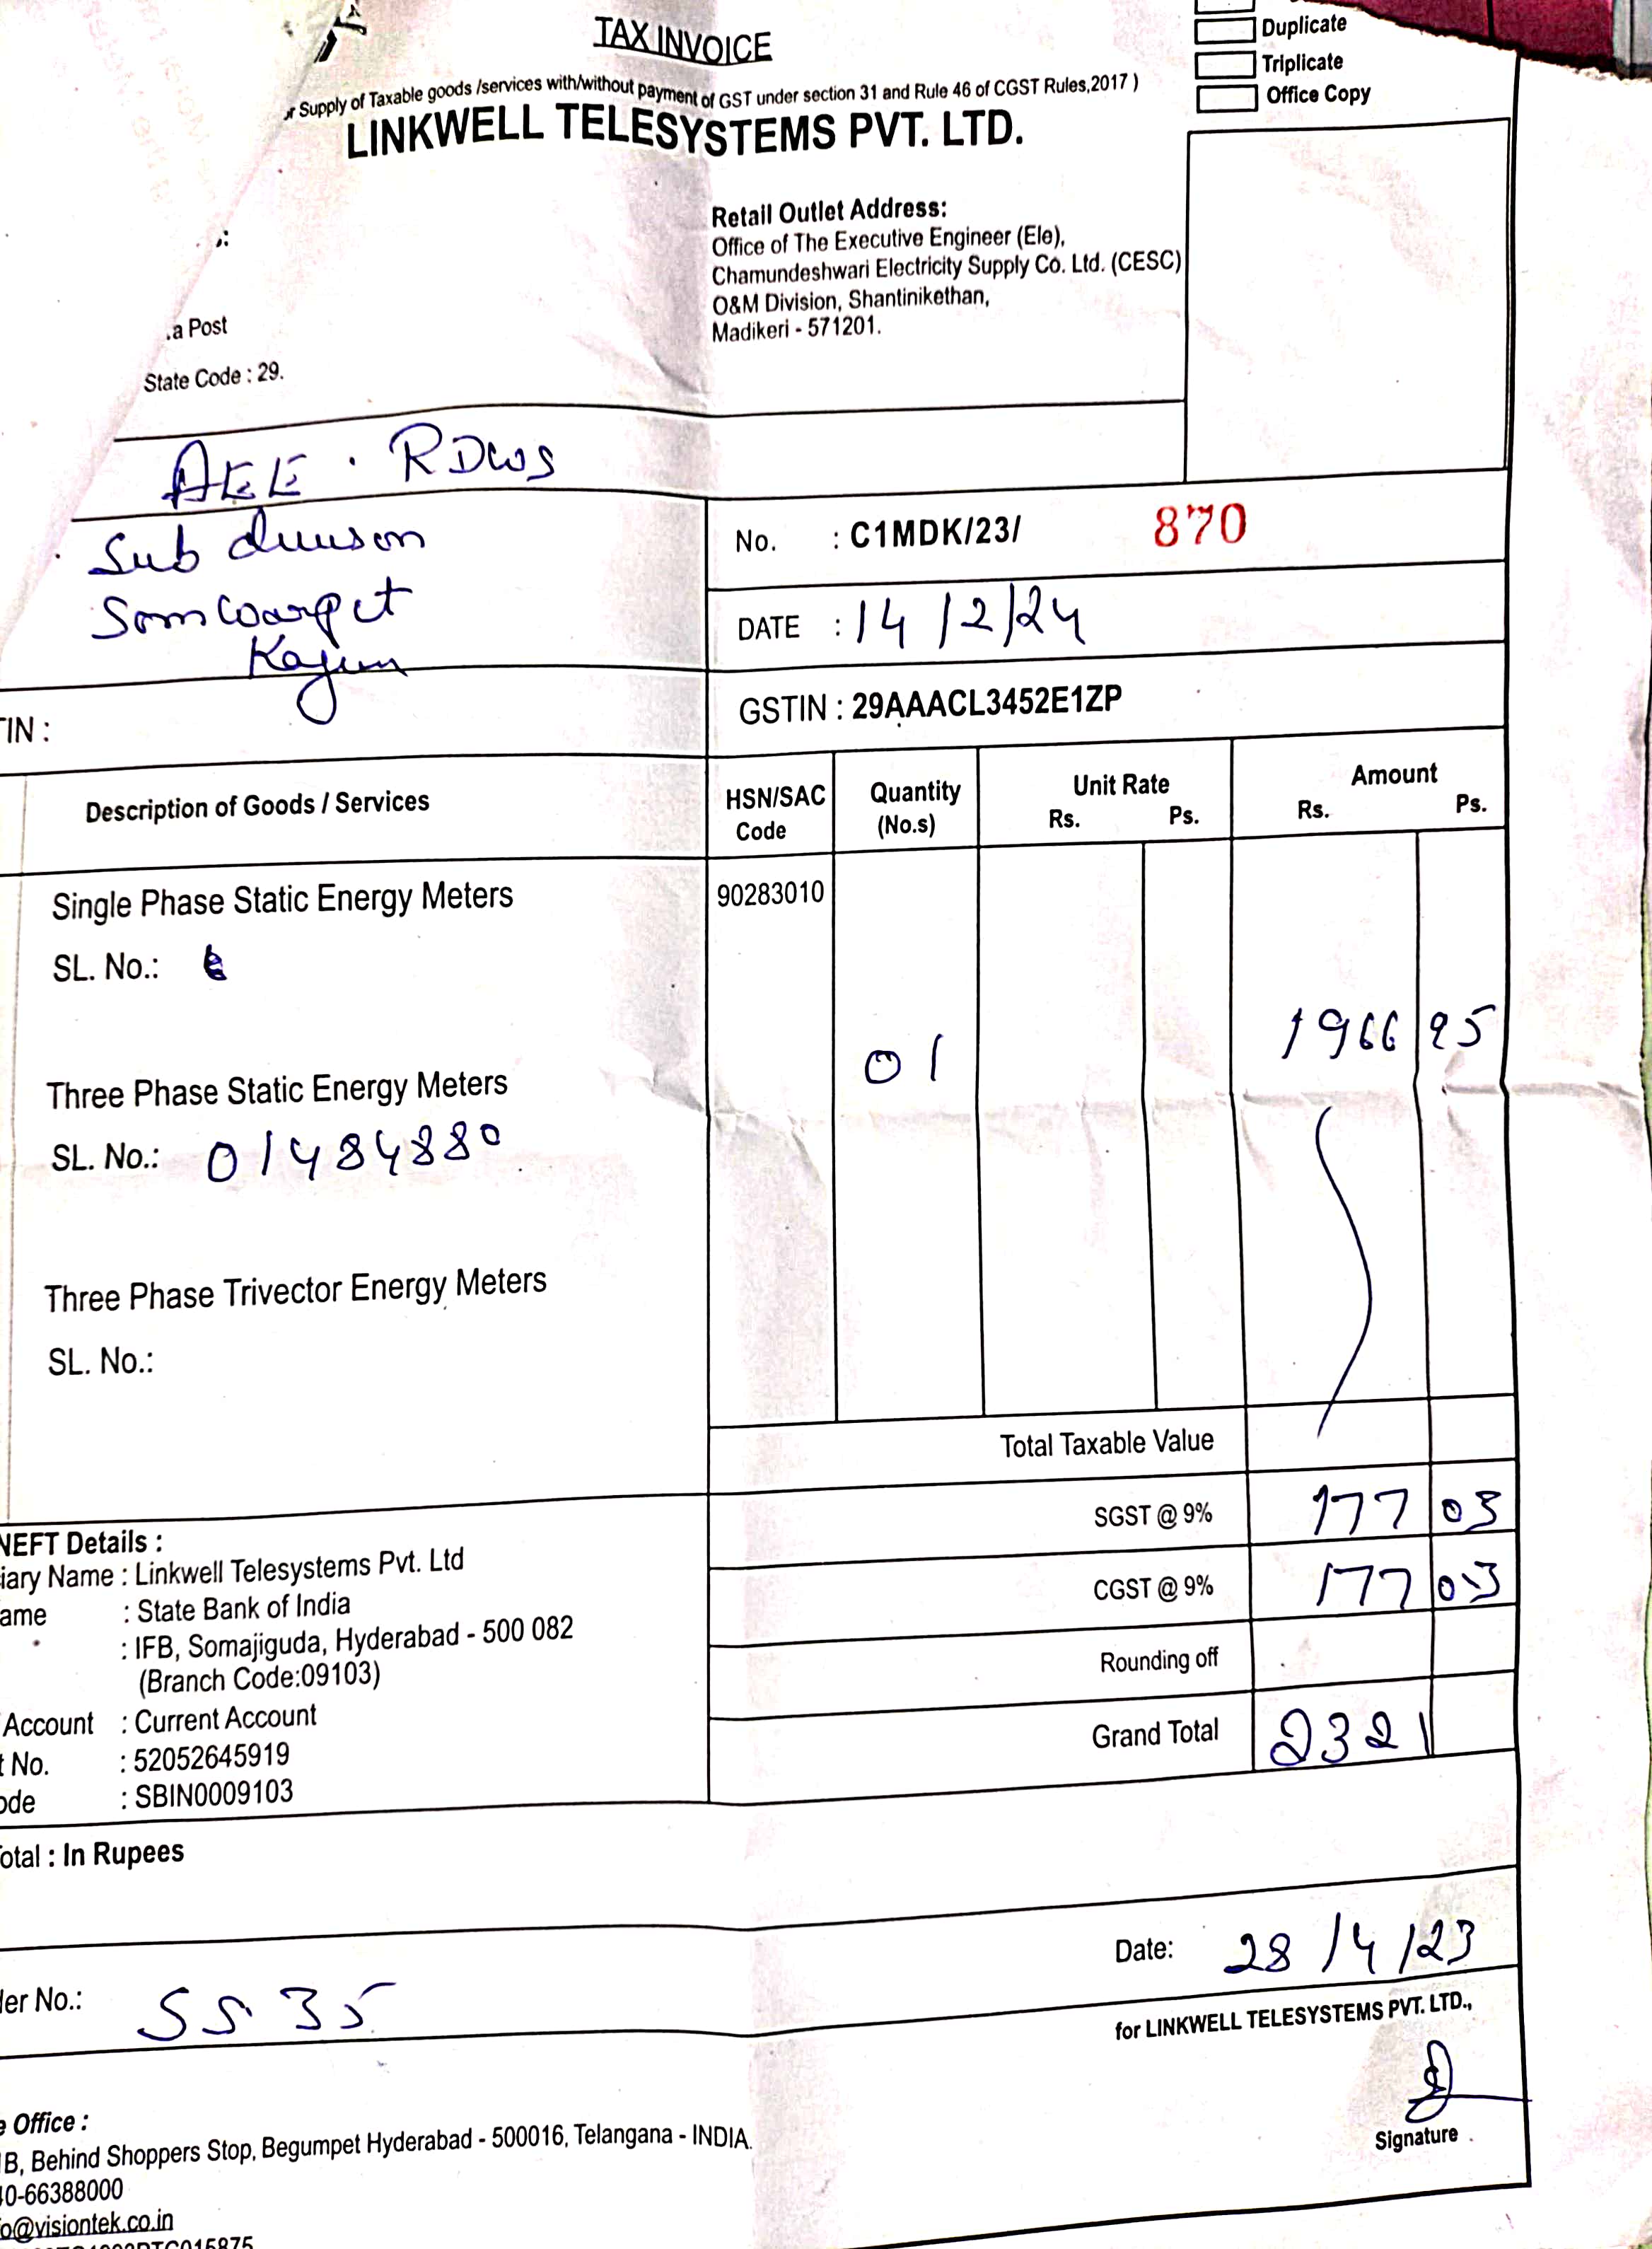 TAX INVOICE
Duplicate
Triplicate
Office Copy
Supply of Taxable goods /services with/without payment of GST under section 31 and Rule 46 of CGST Rules,2017 )
LINKWELL TELESYSTEMS PVT. LTD.
Retail Outlet Address:
Office of The Executive Engineer (Ele),
Chamundeshwari Electricity Supply Co. Ltd. (CESC)
O&M Division, Shantinikethan,
Madikeri - 571201.
a Post
State Code : 29.
AEE . RDWS
Sub
No. : C1MDK/23/ 870
DATE : 14/2/24
TIN :
GSTIN : 29AAACL3452E1ZP
Description of Goods / Services HSN/SAC Code Quantity (No.s) Unit Rate Rs. Ps. Amount Rs. Ps.
Single Phase Static Energy Meters 90283010
SL. No.:
01 1966 95
Three Phase Static Energy Meters
SL. No.: 01484880
Three Phase Trivector Energy Meters
SL. No.:
Total Taxable Value
SGST @ 9% 177 03
CGST @ 9% 177 03
Rounding off
Grand Total 2321
NEFT Details :
iary Name : Linkwell Telesystems Pvt. Ltd
ame : State Bank of India
: IFB, Somajiguda, Hyderabad - 500 082
(Branch Code:09103)
Account : Current Account
t No. : 52052645919
ode : SBIN0009103
otal : In Rupees
Date: 28/4/23
der No.: SS 35
for LINKWELL TELESYSTEMS PVT. LTD.,
Signature
e Office :
1B, Behind Shoppers Stop, Begumpet Hyderabad - 500016, Telangana - INDIA.
40-66388000
fo@visiontek.co.in